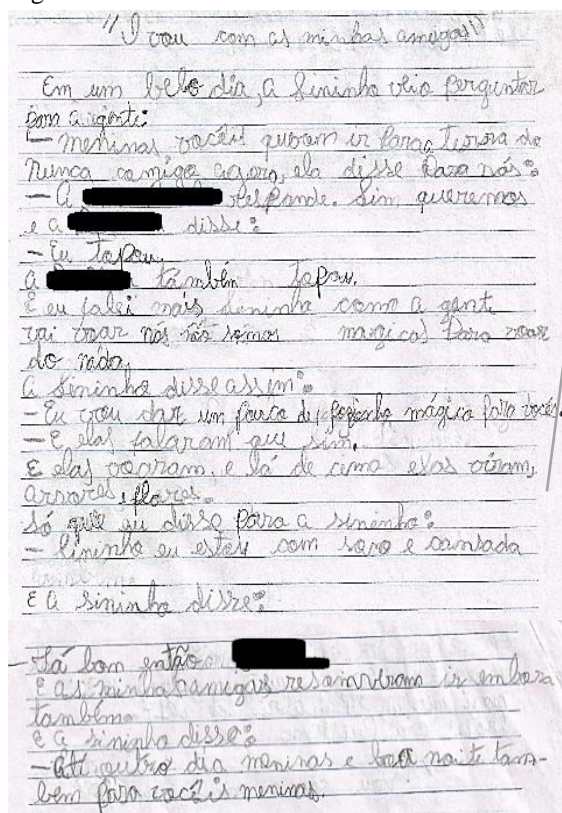 "I vou com as minhas amigas"
Em um belo dia, a Sininho veio perguntar
para a gente:
— meninas vocêis queram ir para a terra do
Nunca comigo agora, ela disse para nós:
— A responde. Sim queremos
e a disse:
— Eu topou.
A também topou.
E eu falei mais seninha como a gente
vai voar nós não somos magicas para voar
do nada.
A seninho disse assim:
— Eu vou dar um pouco de pozinho mágico para vocês.
— E elas falaram que sim.
E elas voaram. e lá de cima elas viram,
arvores, flores.
Só que eu disse para a seninho:
— Sininho eu estou com sono e cansada
E a sininho disse:
— Tá bom então
E as minhas amigas resouveram ir embora
também.
E a sininho disse:
— Até outro dia meninas e boa noite tam-
bem para vocêis meninas.